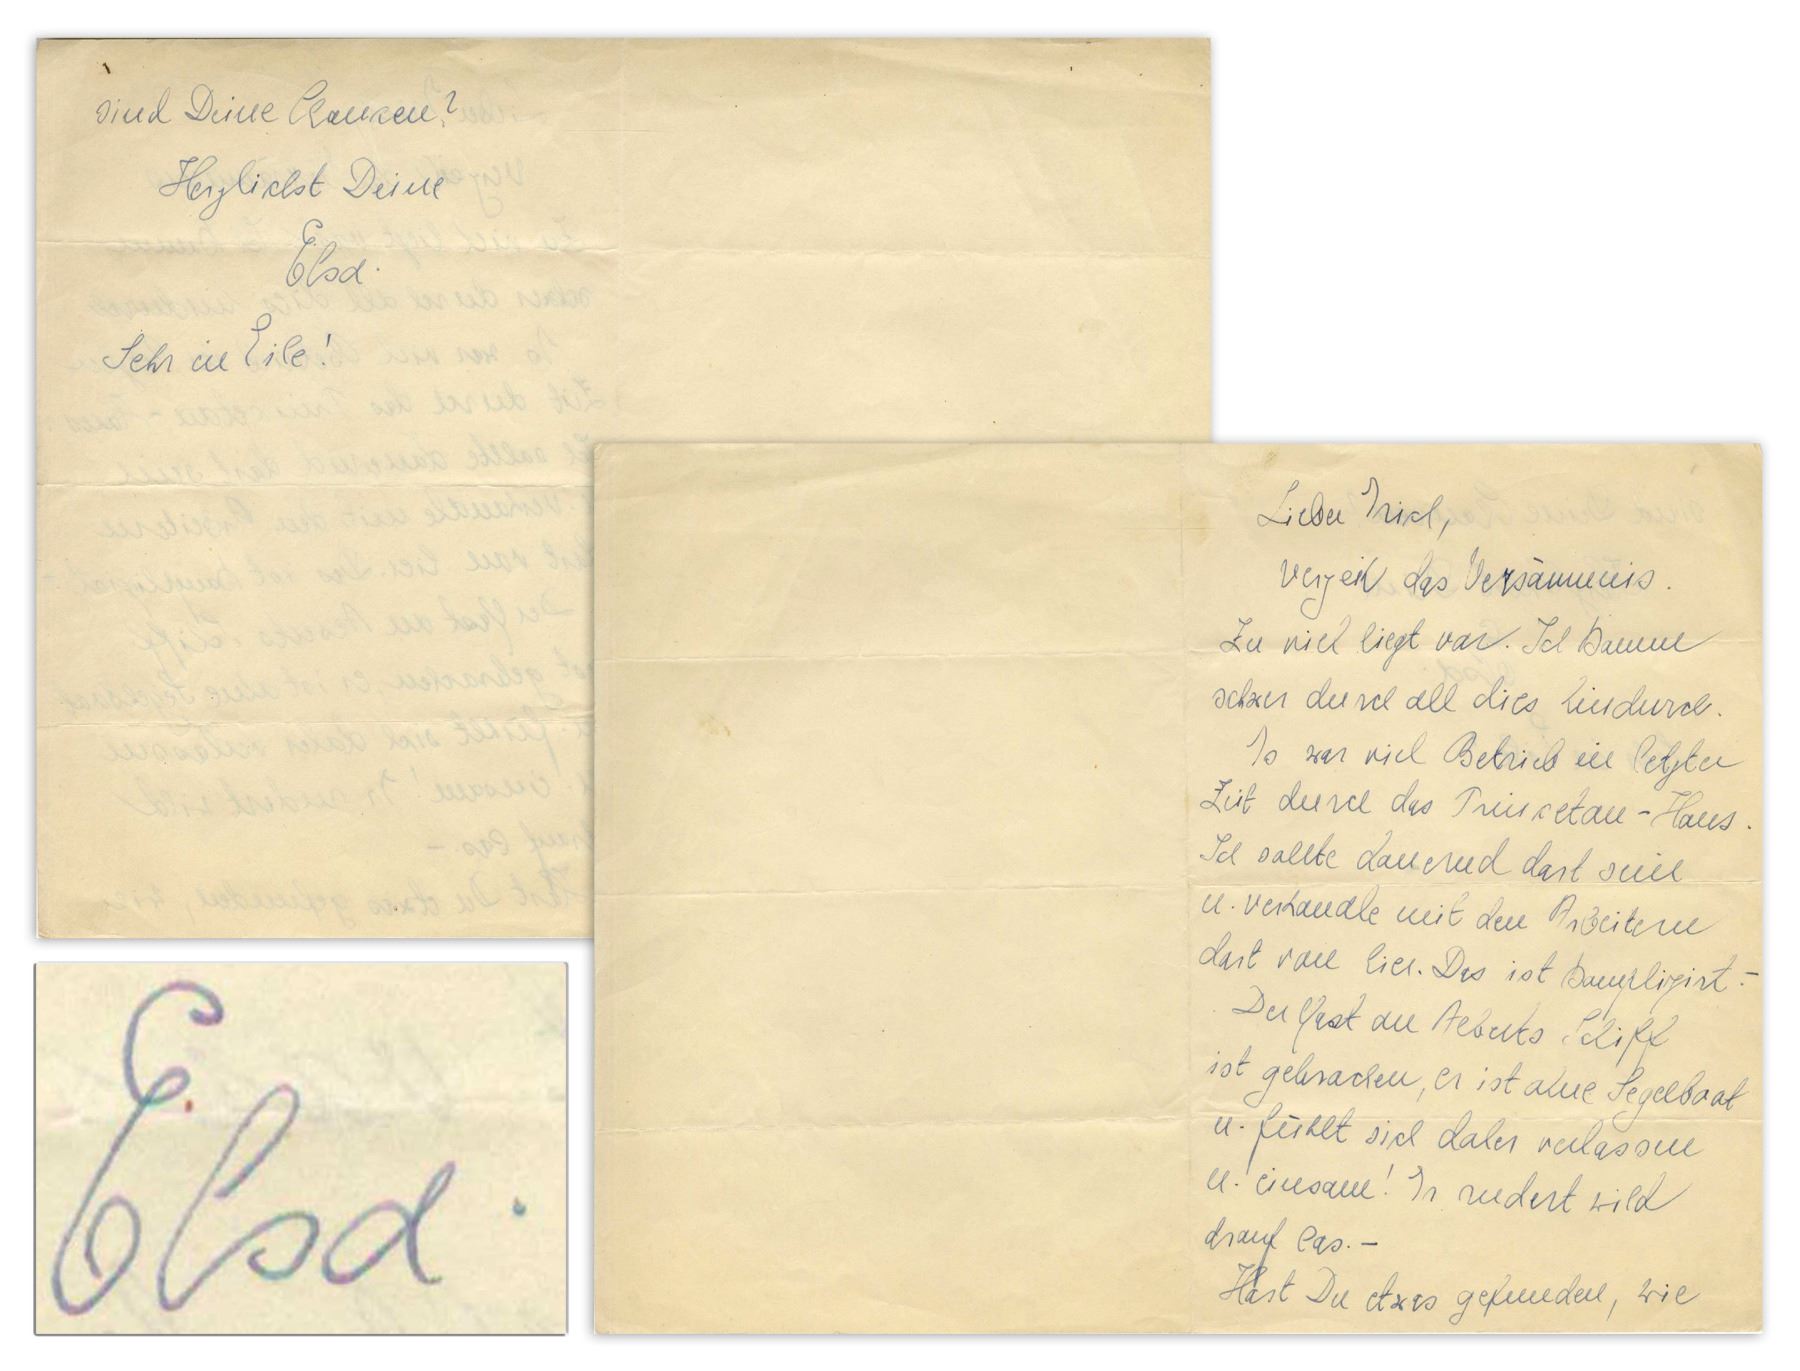 Lieber Erich,
verzeih das Versäumnis.
Zu viel liegt vor. Ich komme
schwer durch all dies hindurch.
Es war viel Betrieb in letzter
Zeit durch das Princeton-Haus.
Ich sollte dauernd dort sein
u. verhandle mit den Arbeitern
dort von hier. Das ist komplizirt. –
Der Mast an Alberts Schiff
ist gebrochen, er ist ohne Segelboot
u. fühlt sich daher verlassen
u. einsam! Er rudert wild
drauf los. –
Hast Du etwas gefunden, wie
sind Deine Chancen?
Herzlichst Deine
Elsa.
Sehr in Eile!
Elsa.